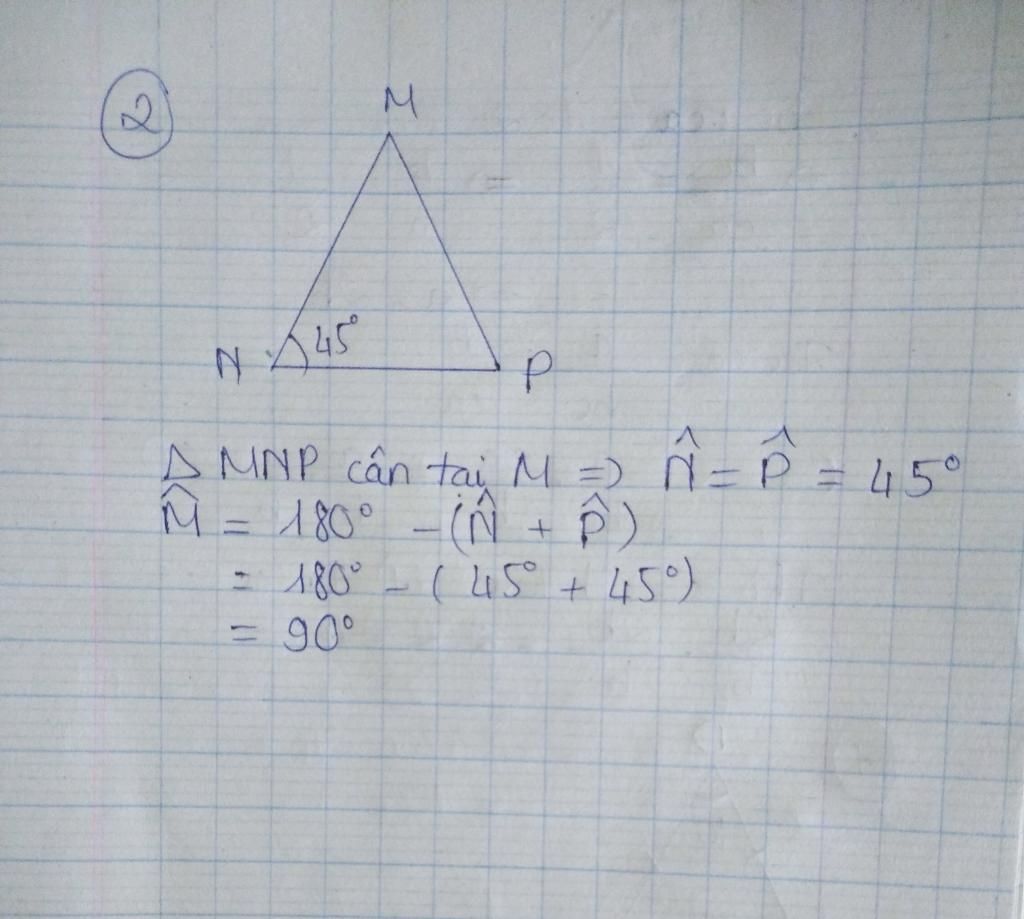 2
M
45°
N
P
Δ MNP cân tại M => N̂ = P̂ = 45°
M̂ = 180° - (N̂ + P̂)
= 180° - ( 45° + 45°)
= 90°